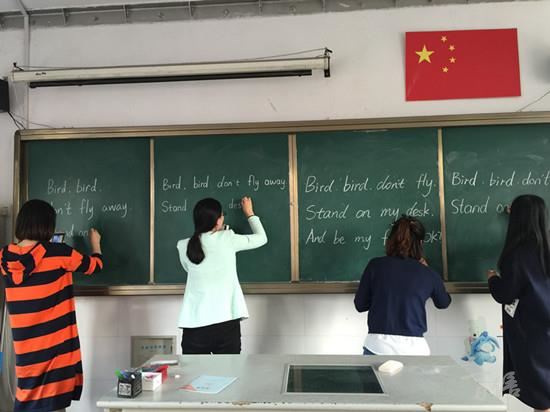 Bird, bird.
don't fly away.
Bird, bird don't fly away.
Stand desk
Bird, bird, don't fly.
Stand on my desk.
And be my ok?
Bird, bird, don't
Stand on